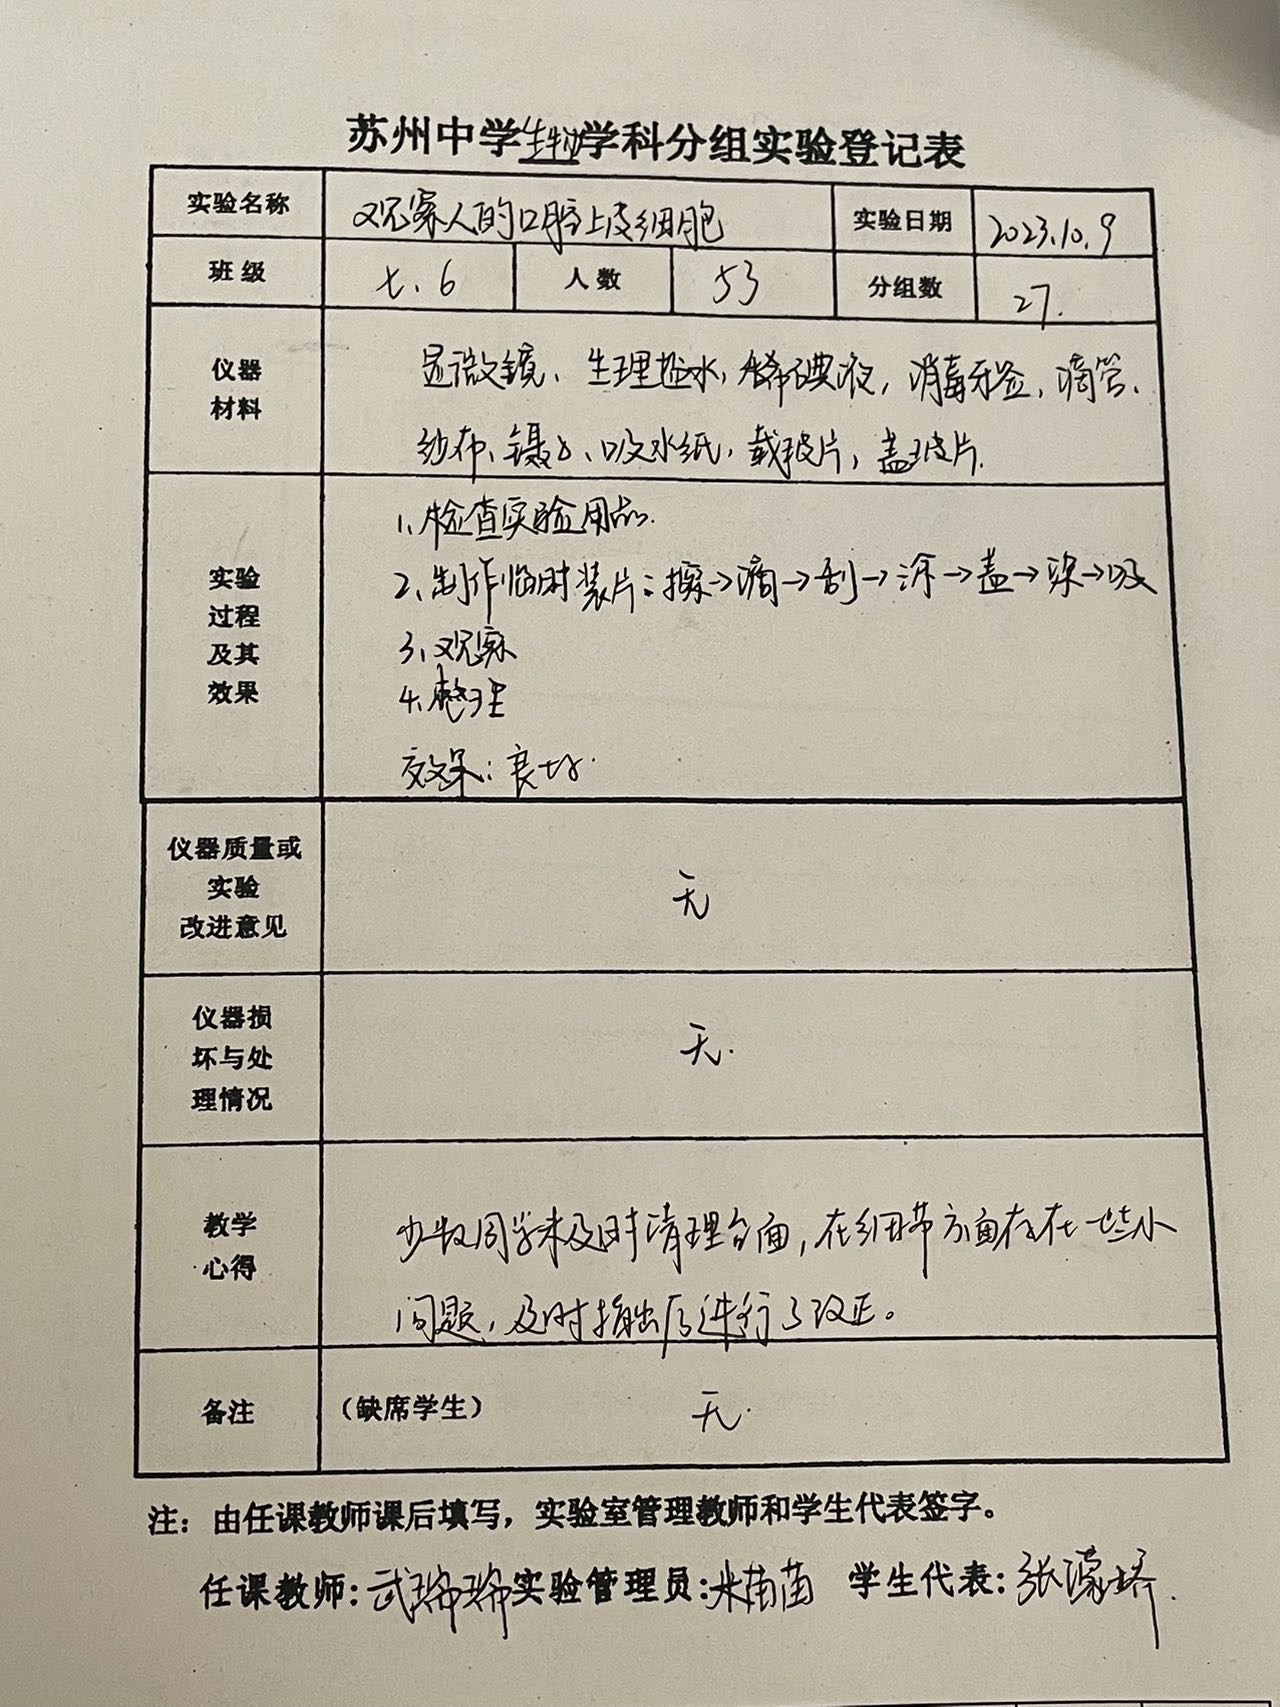 苏州中学生物学科分组实验登记表
实验名称 观察人的口腔上皮细胞 实验日期 2023.10.9
班级 七.6 人数 53 分组数 27.
仪器
材料
显微镜、生理盐水,稀碘液,消毒牙签,滴管、
纱布、镊子、吸水纸,载玻片,盖玻片.
实验
过程
及其
效果
1、检查实验用品.
2、制作临时装片:擦→滴→刮→涂→盖→染→吸
3、观察
4、整理
效果:良好.
仪器质量或
实验
改进意见
无
仪器损
坏与处
理情况
无.
教学
心得
少数同学未及时清理台面,在细节方面存在一些小
问题,及时指出后进行了改正。
备注 (缺席学生) 无.
注:由任课教师课后填写,实验室管理教师和学生代表签字。
任课教师:武瑞瑞 实验管理员:米苗苗 学生代表:张